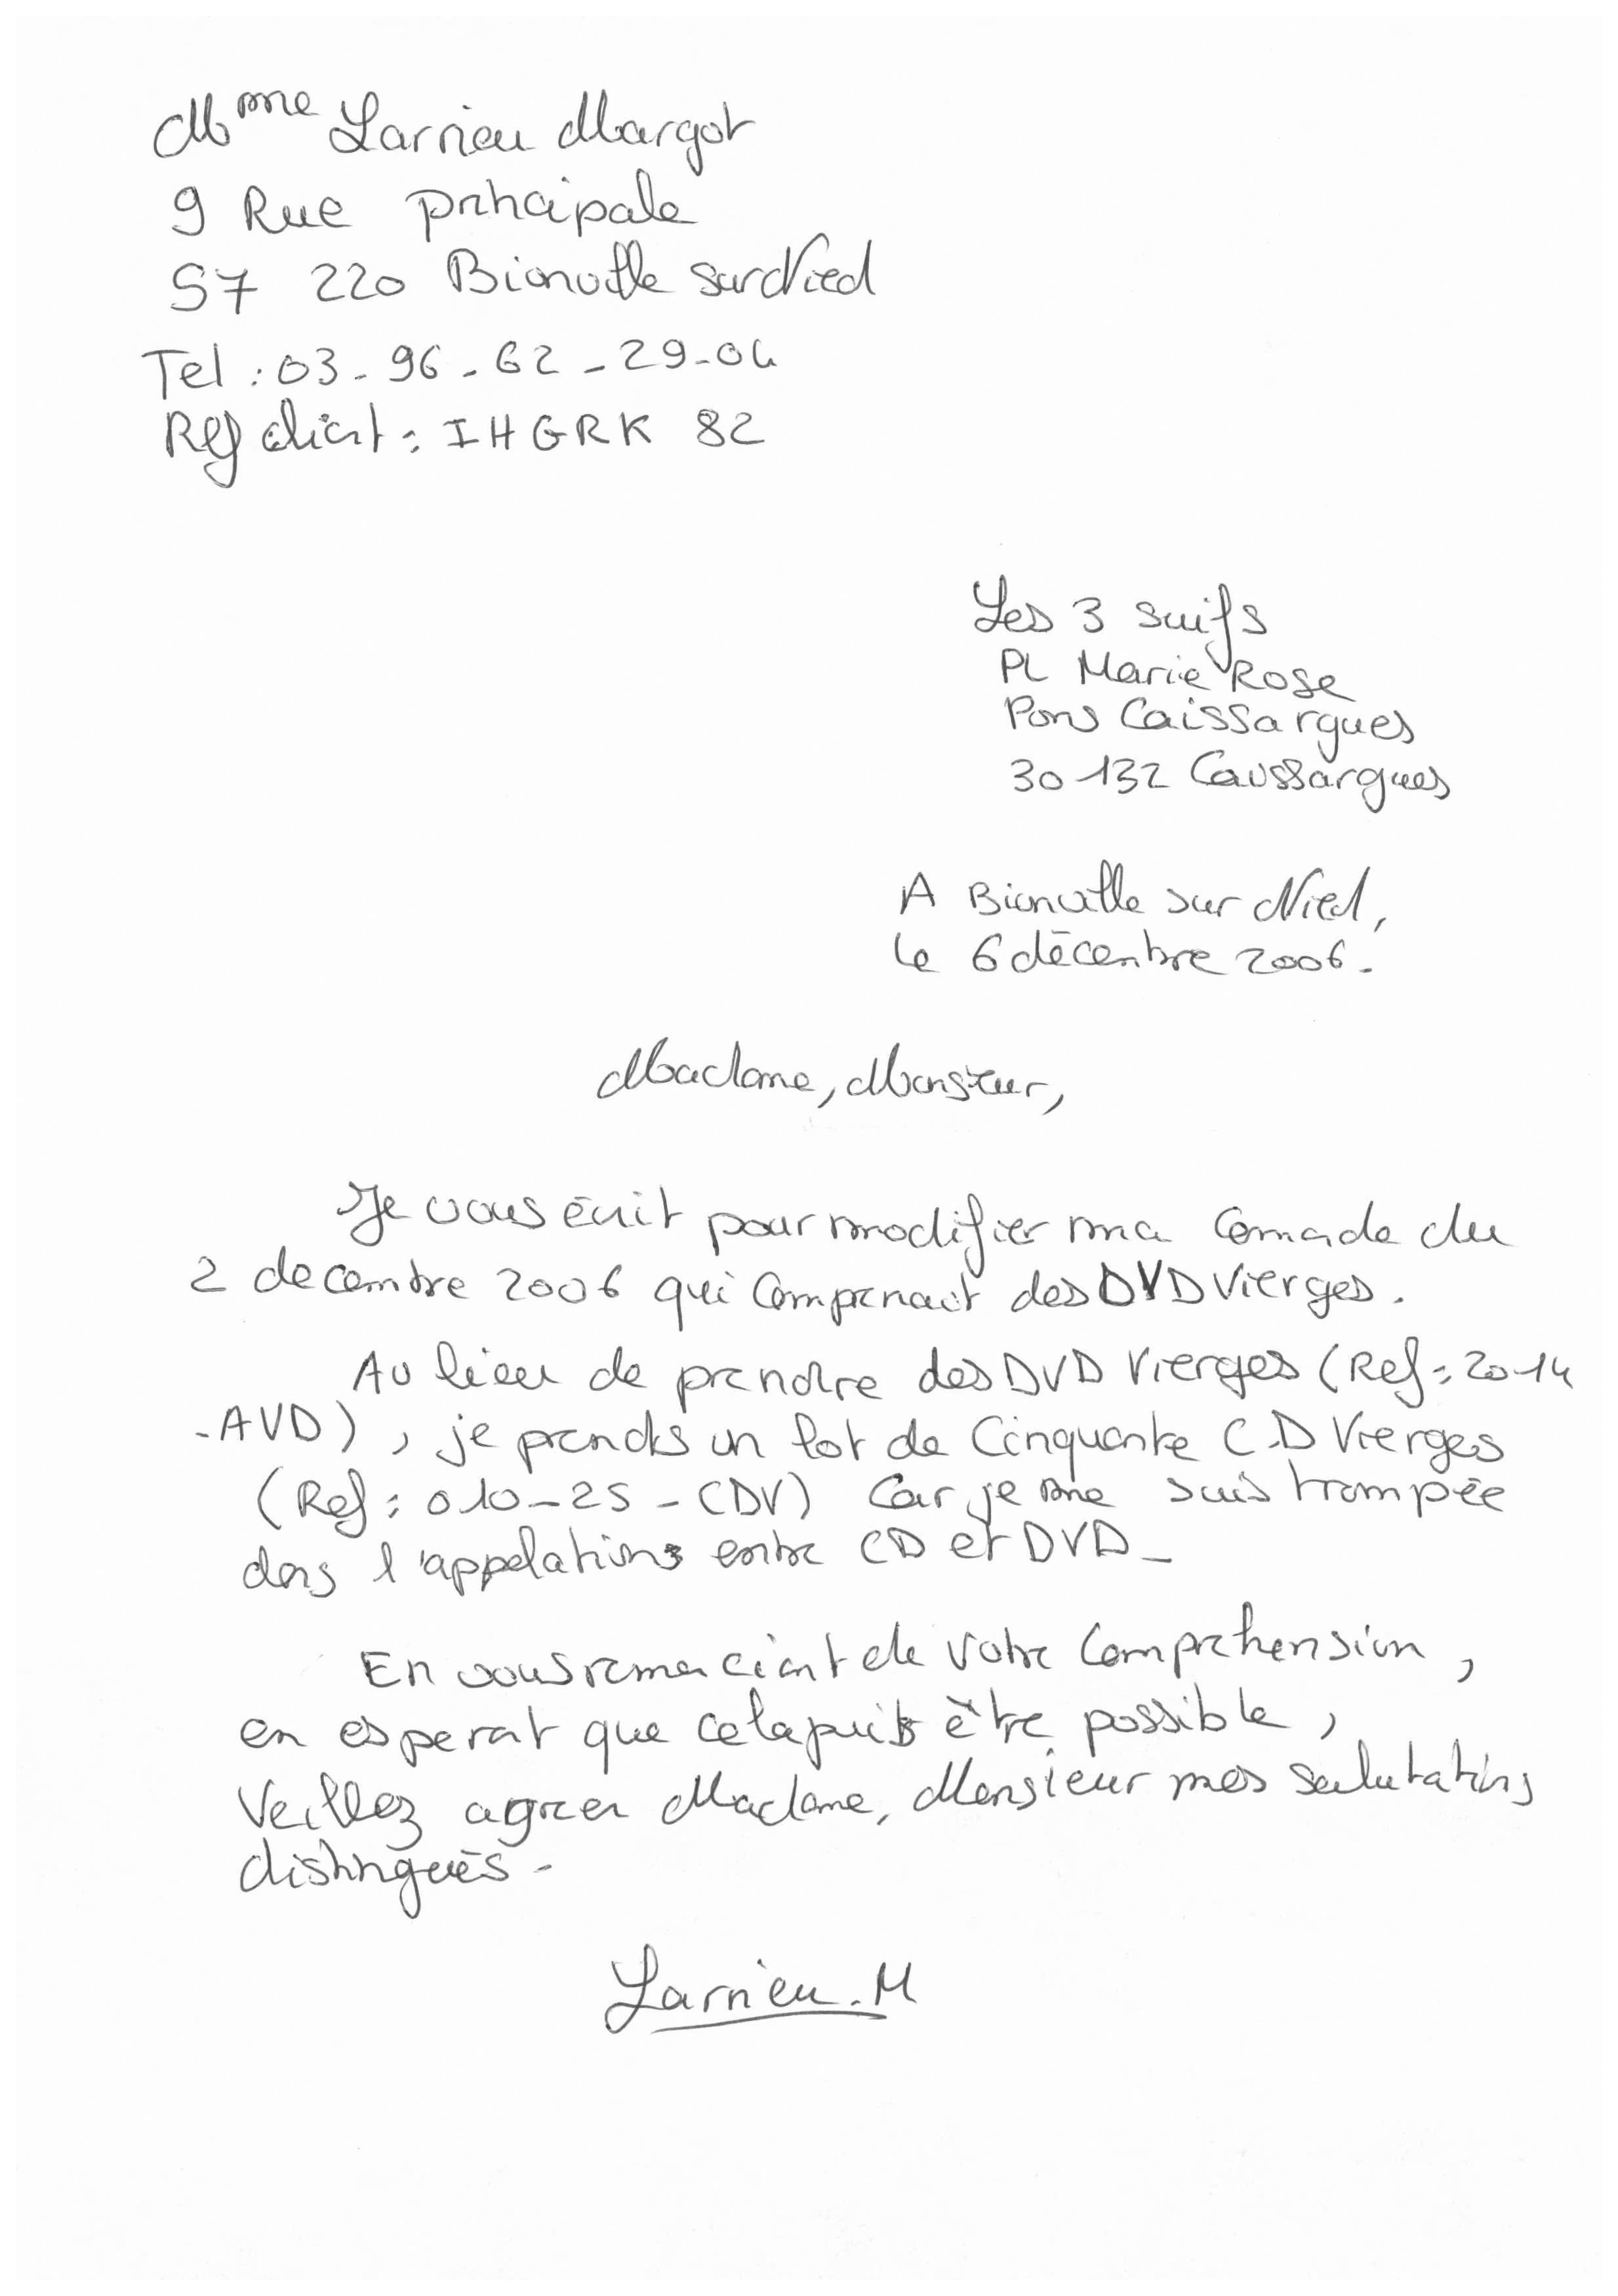 Mme Larrieu Margot
9 Rue principale
57 220 Bionville sur Nied
Tel : 03-96-62-29-04
Ref client : IHGRK 82
Les 3 suifs
PL Marie Rose
Pons Caissargues
30 132 Caissargues
A Bionville sur Nied,
le 6 décenbre 2006.
Madame, Monsieur,
Je vous écrit pour modifier ma comade du
2 decembre 2006 qui comprenait des DVD Vierges.
Au lieu de prendre des DVD Vierges (Ref : 20-14
-AVD), je prends un lot de Cinquante CD Vierges
(Ref : 010-25-CDV) Car je me suis trompée
dans l'appelations entre CD et DVD_
En vous remerciant de votre comprehension,
en esperat que cela puis être possible,
Veillez agreer Madame, Monsieur mes salutations
distingués-
Larrieu.M